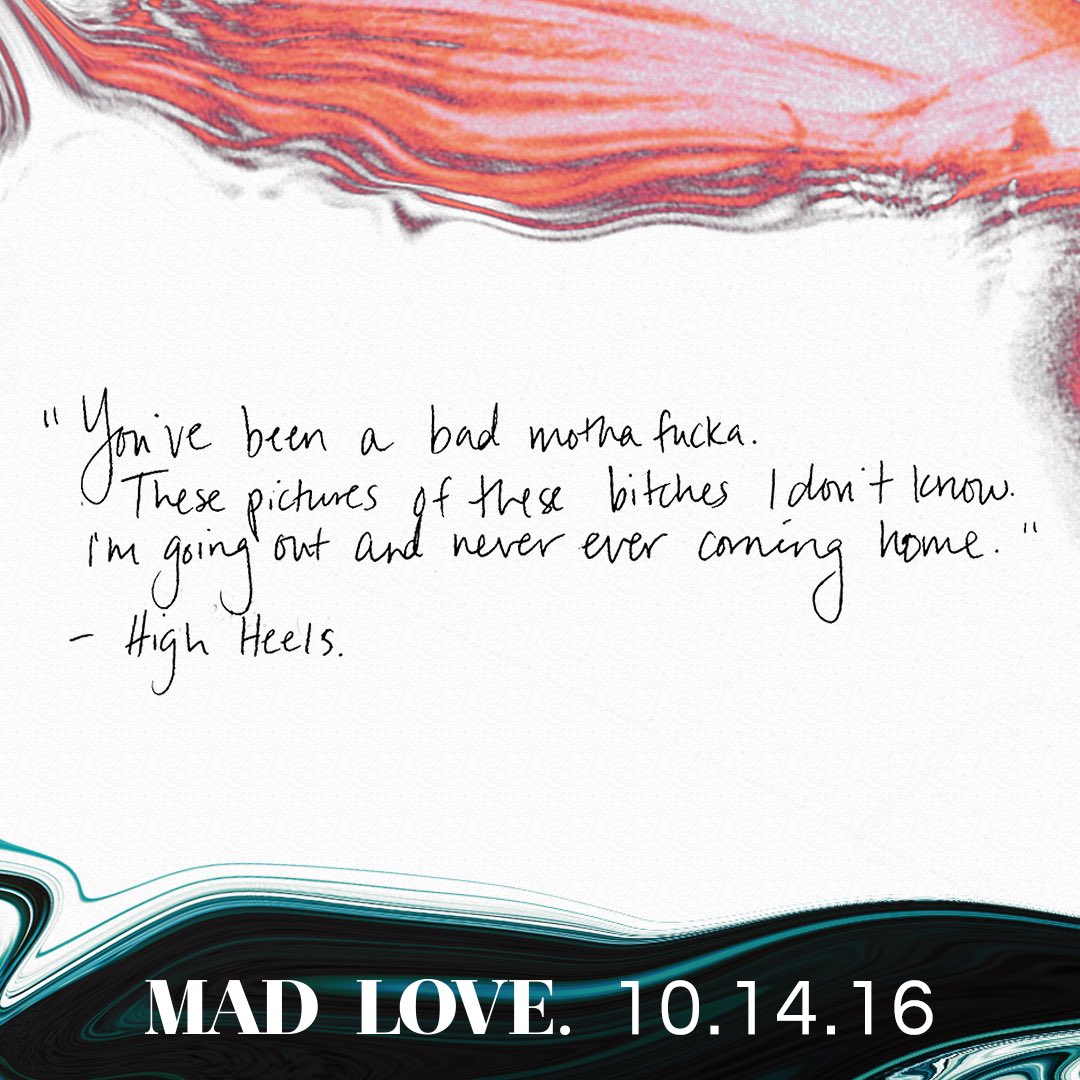 "You've been a bad motha fucka.
These pictures of these bitches I don't know.
i'm going out and never ever coming home."
- High Heels.
MAD LOVE. 10.14.16